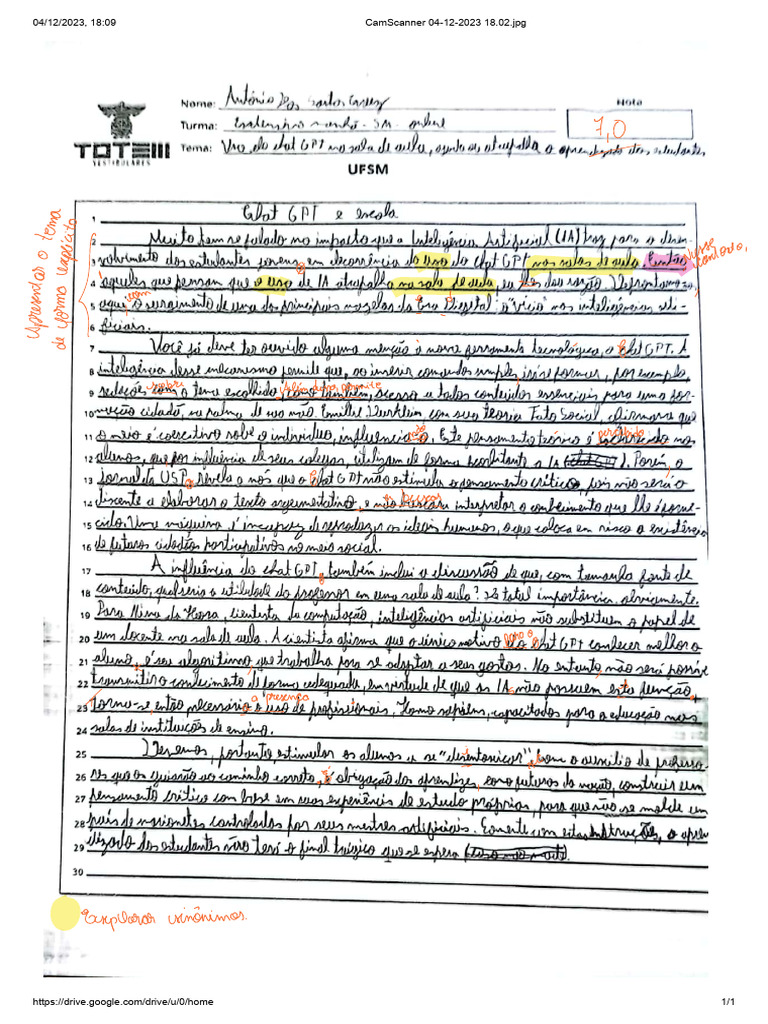 04/12/2023, 18:09
CamScanner 04-12-2023 18.02.jpg
Nome: Antônio
Nota
7,0
Turma: Extensivo manhã - SM
Tema: Uso do chat GPT na sala de aula, ajuda ou atrapalha o aprendizado dos estudantes
TOTEM
VESTIBULARES
UFSM
Apresentar o tema de forma explícita
1 Chat GPT e escola
2 Muito tem se falado no impacto que a Inteligência Artificial (IA) traz para o desen-
3 volvimento dos estudantes jovens em decorrência do uso do chat GPT nas salas de aula. Então
Nesse contexto,
4 àqueles que pensam que o uso de IA atrapalha na sala de aula, eu lhes dou razão. Defrontamo-nos
5 aqui o surgimento de uma das principais mazelas da Era Digital, o "vício" nas inteligências arti-
com
6 ficiais.
7 Você já deve ter ouvido alguma menção à nova ferramenta tecnológica, o Chat GPT. A
8 inteligência desse mecanismo permite que, ao inserir comandos simples, irá se formar, por exemplo,
9 redações com o tema escolhido, como também, acesso a todos conteúdos essenciais para uma for-
sobre
Além disso, permite
10 mação cidadã, na palma de sua mão. Emille Durkheim com sua teoria Fato Social, afirmava que
11 o meio é coercitivo sobre o indivíduo, influencia-o. Este pensamento teórico é nos
percebido
12 alunos, que por influência de seus colegas, utilizam de forma exorbitante a IA (chat GPT). Porém, o
13 jornal da USP, revela a nós que o Chat GPT não estimula o pensamento crítico, pois não seria o
14 discente a elaborar o texto argumentativo, e não buscará interpretar o conhecimento que lhe é forne-
buscar
15 cido. Uma máquina é incapaz de as ideais humanos, o que coloca em risco a existência
16 de futuros cidadãos participativos no meio social.
17 A influência do chat GPT, também inclui a discussão de que, com tamanha fonte de
18 conteúdo, qual seria a utilidade do professor em uma sala de aula? De total importância, obviamente.
19 Para Nina da Hora, cientista da computação, inteligências artificiais não substituem o papel de
20 um docente na sala de aula. A cientista afirma que o único motivo do Chat GPT conhecer melhor o
para o
21 aluno, é seu algoritmo, que trabalha para se adaptar a seus gostos. No entanto não será possível
22 transmitir o conhecimento de forma adequada, em virtude de que as IA não possuem esta função,
23 torna-se então necessário o uso de profissionais. Homo sapiens, capacitados para a educação nas
a presença
24 salas de instituições de ensino.
25 Devemos, portanto, estimular os alunos a se "dessintonizar". Com o auxílio de professo-
26 res que os guiarão ao caminho correto, é obrigação dos aprendizes, como futuros da nação, construir um
27 pensamento crítico com base em suas experiências de estudo próprias, para que não se molde um
28 país de marionetes controladas por seus mestres artificiais. Somente com estas instruções, o apren-
29 dizado dos estudantes não terá o final trágico que se espera
30
Explorar sinônimos.
https://drive.google.com/drive/u/0/home
1/1